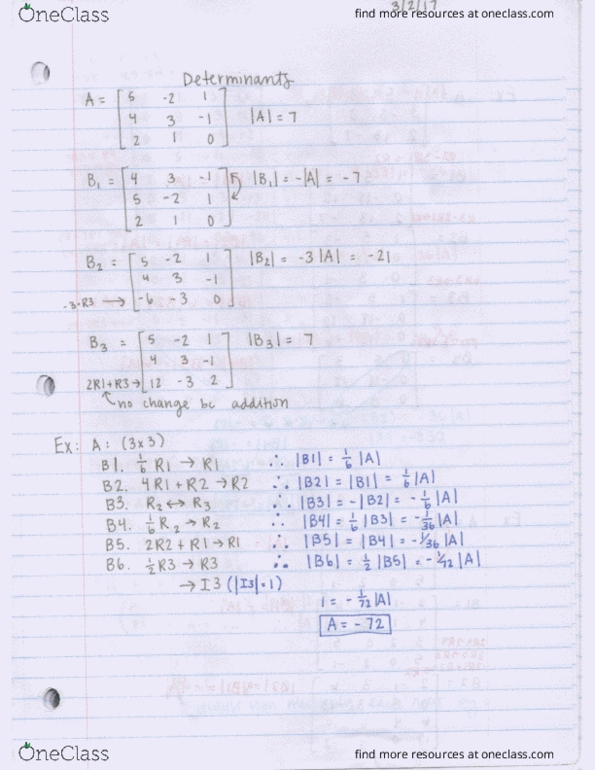 OneClass
find more resources at oneclass.com
3/2/17
Determinants
A = [ 5 -2 1
4 3 -1
2 1 0 ] |A| = 7
B₁ = [ 4 3 -1
5 -2 1
2 1 0 ] |B₁| = -|A| = -7
B₂ = [ 5 -2 1
4 3 -1
-3·R3 → -6 -3 0 ] |B₂| = -3|A| = -21
B₃ = [ 5 -2 1
4 3 -1
2R1+R3 → 12 -3 2 ] |B₃| = 7
no change bc addition
Ex: A: (3x3)
B1. 1/6 R1 → R1 ∴ |B1| = 1/6 |A|
B2. 4R1 + R2 → R2 ∴ |B2| = |B1| = 1/6 |A|
B3. R₂ ↔ R₃ ∴ |B3| = -|B2| = -1/6 |A|
B4. 1/6 R₂ → R₂ ∴ |B4| = 1/6 |B3| = -1/36 |A|
B5. 2R2 + R1 → R1 ∴ |B5| = |B4| = -1/36 |A|
B6. 1/2 R3 → R3 ∴ |B6| = 1/2 |B5| = -1/72 |A|
→ I3 (|I3| = 1)
1 = -1/72 |A|
A = -72
OneClass
find more resources at oneclass.com